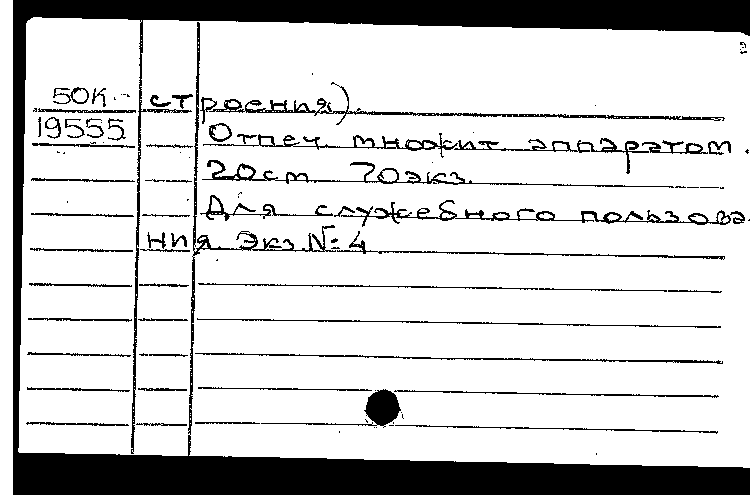 2
50к.- строения).
19555 Отпеч. множит. аппаратом.
20см 70экз.
Для служебного пользова-
ния. Экз.№ 4